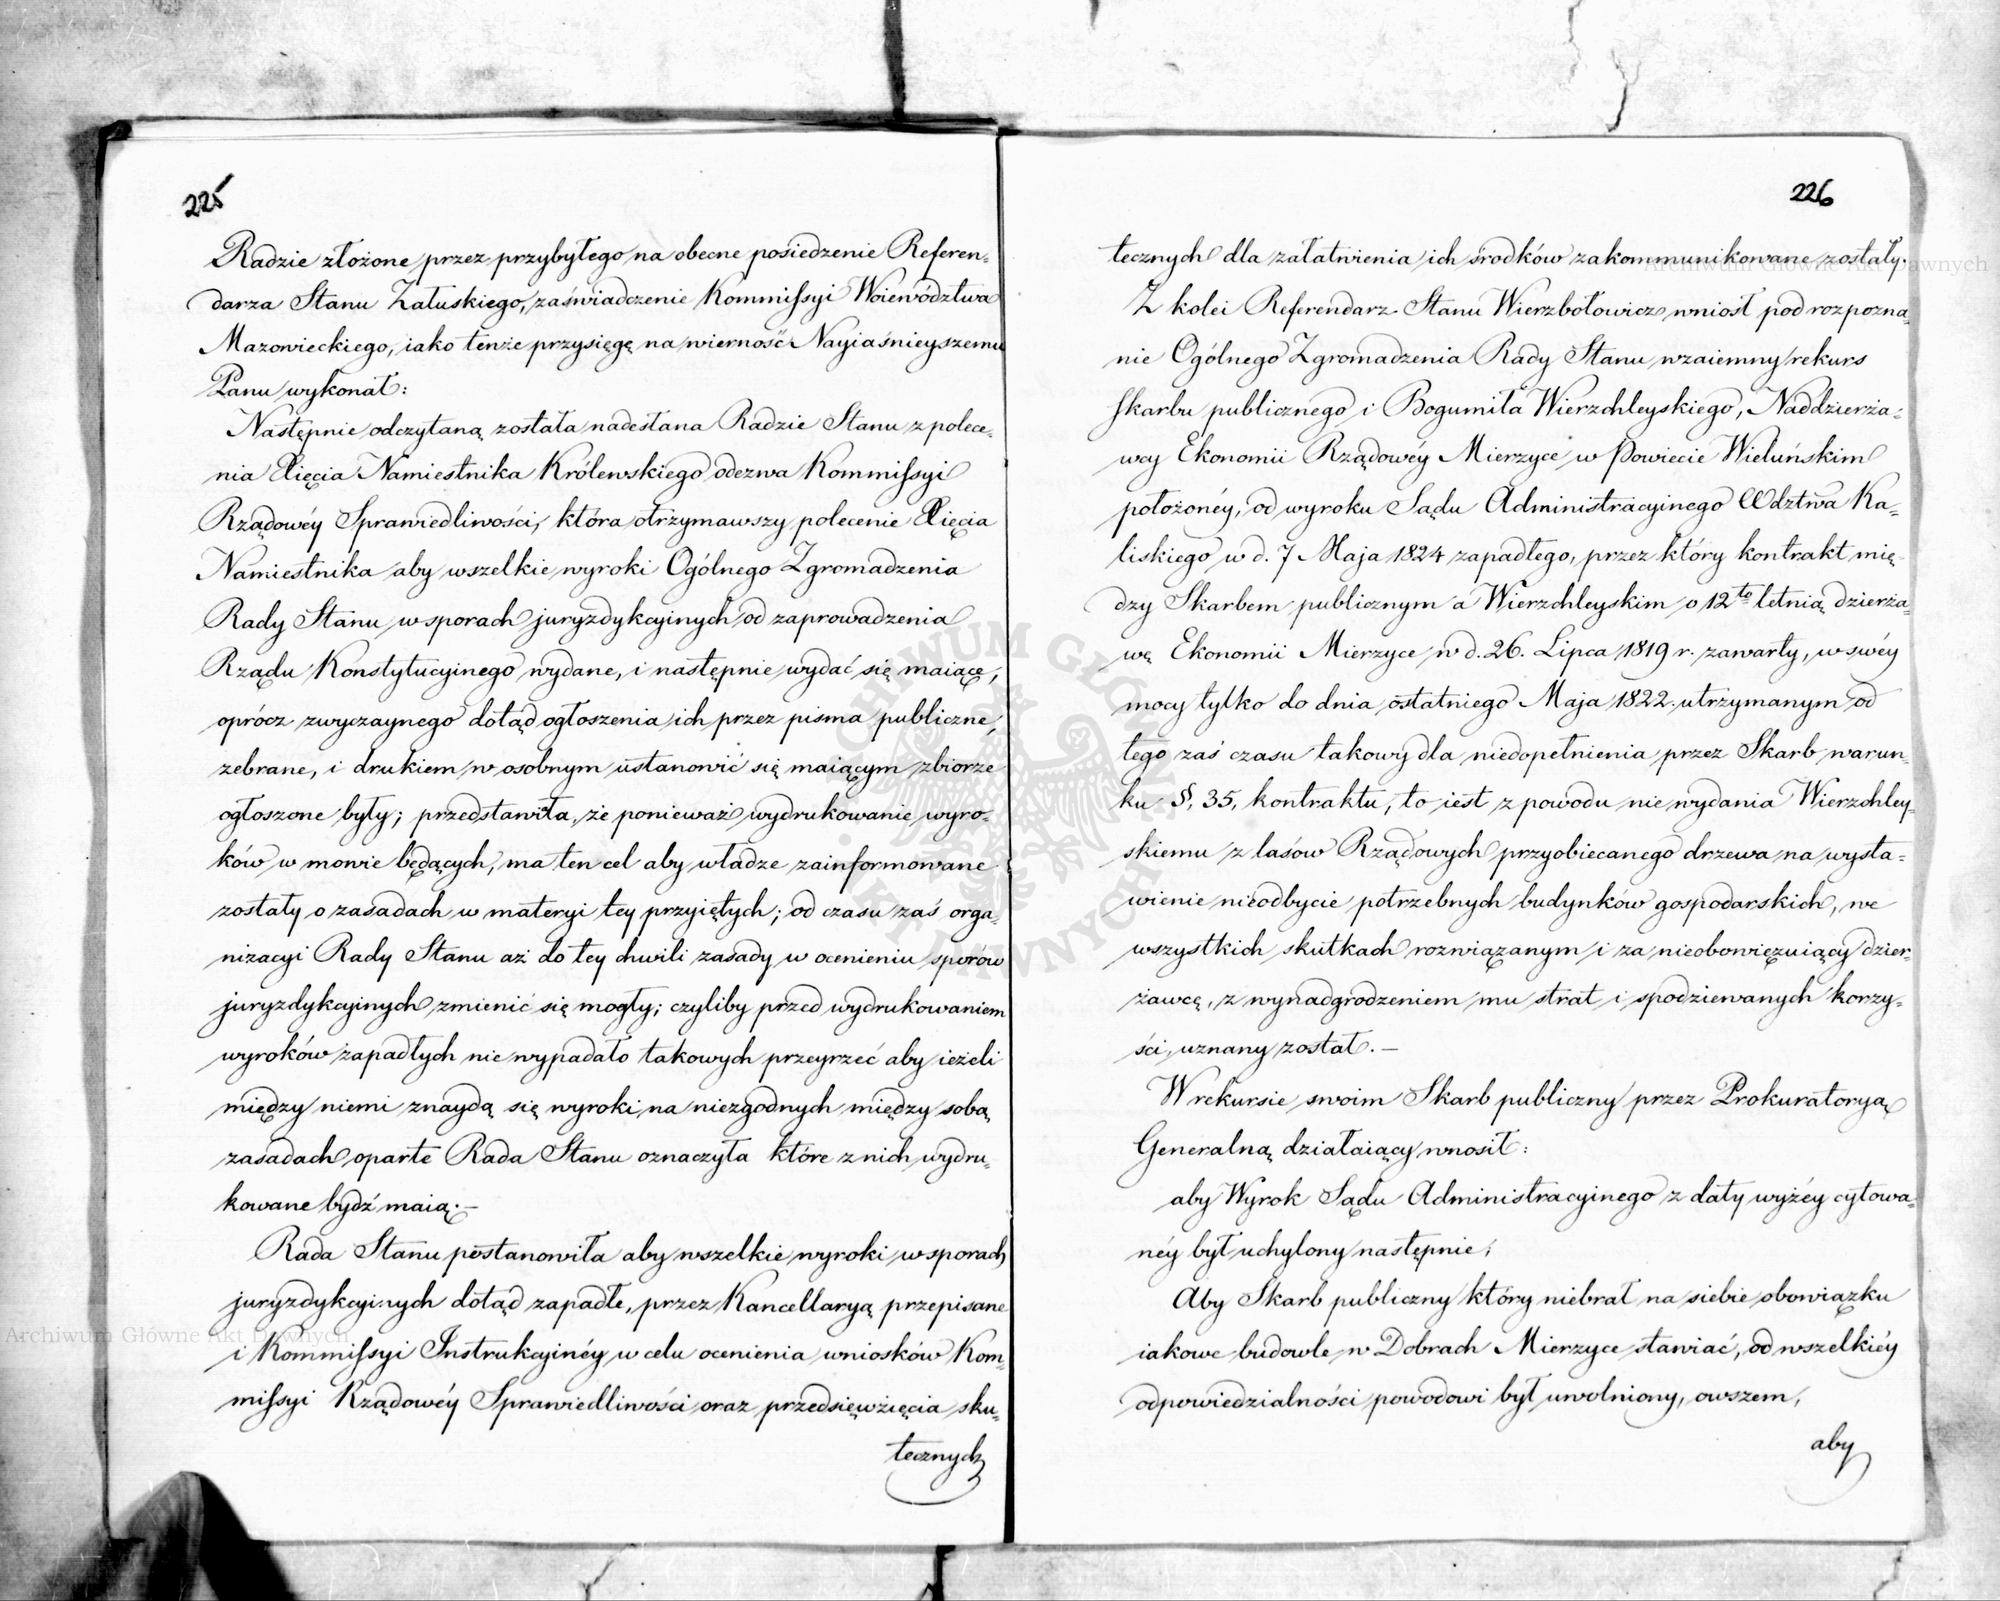 225
Radzie złożone przez przybyłego na obecne posiedzenie Referen-
darza Stanu Załuskiego, zaświadczenie Kommissyi Woiewództwa
Mazowieckiego, iako tenże przysięgę na wierność Nayiaśnieyszemu
Panu wykonał:
Następnie odczytaną została nadesłana Radzie Stanu z polece-
nia Xięcia Namiestnika Królewskiego odezwa Kommissyi
Rządowéy Sprawiedliwości, która otrzymawszy polecenie Xięcia
Namiestnika aby wszelkie wyroki Ogólnego Zgromadzenia
Rady Stanu w sporach juryzdykcyinych od zaprowadzenia
Rządu Konstytucyinego wydane, i następnie wydać się maiące,
oprócz zwyczaynego dotąd ogłoszenia ich przez pisma publiczne,
zebrane, i drukiem w osobnym ustanowić się maiącym zbiorze
ogłoszone były; przedstawiła, że ponieważ wydrukowanie wyro-
ków w mowie będących, ma ten cel aby władze zainformowane
zostały o zasadach w materyi tey przyiętych; od czasu zaś orga-
nizacyi Rady Stanu aż do tey chwili zasady w ocenieniu sporów
juryzdykcyinych zmienić się mogły; czyliby przed wydrukowaniem
wyroków zapadłych nie wypadało takowych przeyrzeć aby ieżeli
między niemi znaydą się wyroki na niezgodnych między sobą
zasadach oparte Rada Stanu oznaczyła które z nich wydru-
kowane bydź maią.—
Rada Stanu postanowiła aby wszelkie wyroki w sporach
juryzdykcyinych dotąd zapadłe, przez Kancellaryą przepisane
i Kommissyi Instrukcyinéy w celu ocenienia wniosków Kom-
missyi Rządowéy Sprawiedliwości oraz przedsięwzięcia sku-
tecznych
226
tecznych dla załatwienia ich środków zakommunikowane zostały.
Z kolei Referendarz Stanu Wierzbołowicz wniósł pod rozpozna-
nie Ogólnego Zgromadzenia Rady Stanu wzaiemny rekurs
skarbu publicznego i Bogumiła Wierzchleyskiego, Naddzierża-
wcy Ekonomii Rządowéy Mierzyce w Powiecie Wieluńskim
położonéy, od wyroku Sądu Administracyinego Wdztwa Ka-
liskiego w d. 7 Maja 1824 zapadłego, przez który kontrakt mię-
dzy Skarbem publicznym a Wierzchleyskim o 12to letnią dzierża-
wę Ekonomii Mierzyce w d. 26. Lipca 1819 r. zawarty, w swéy
mocy tylko do dnia ostatniego Maja 1822. utrzymanym od
tego zaś czasu takowy dla niedopełnienia przez Skarb warun-
ku §, 35, kontraktu, to iest z powodu nie wydania Wierzchley-
skiemu z lasów Rządowych przyobiecanego drzewa na wysta-
wienie nieodbycie potrzebnych budynków gospodarskich, we
wszystkich skutkach rozwiązanym i za nieobowięzuiący dzier-
żawcę, z wynadgrodzeniem mu strat i spodziewanych korzy-
ści, uznany został.—
W rekursie swoim Skarb publiczny przez Prokuratoryą
Generalną działaiący wnosił:
aby Wyrok Sądu Administracyinego z daty wyżéy cytowa-
néy był uchylony następnie;
Aby Skarb publiczny który niebrał na siebie obowiązku
iakowe budowle w Dobrach Mierzyce stawiać, od wszelkiéy
odpowiedzialności powodowi był uwolniony, owszem,
aby
Archiwum Główne Akt Dawnych
Archiwum Główne Akt Dawnych
ARCHIWUM GŁÓWNE AKT DAWNYCH